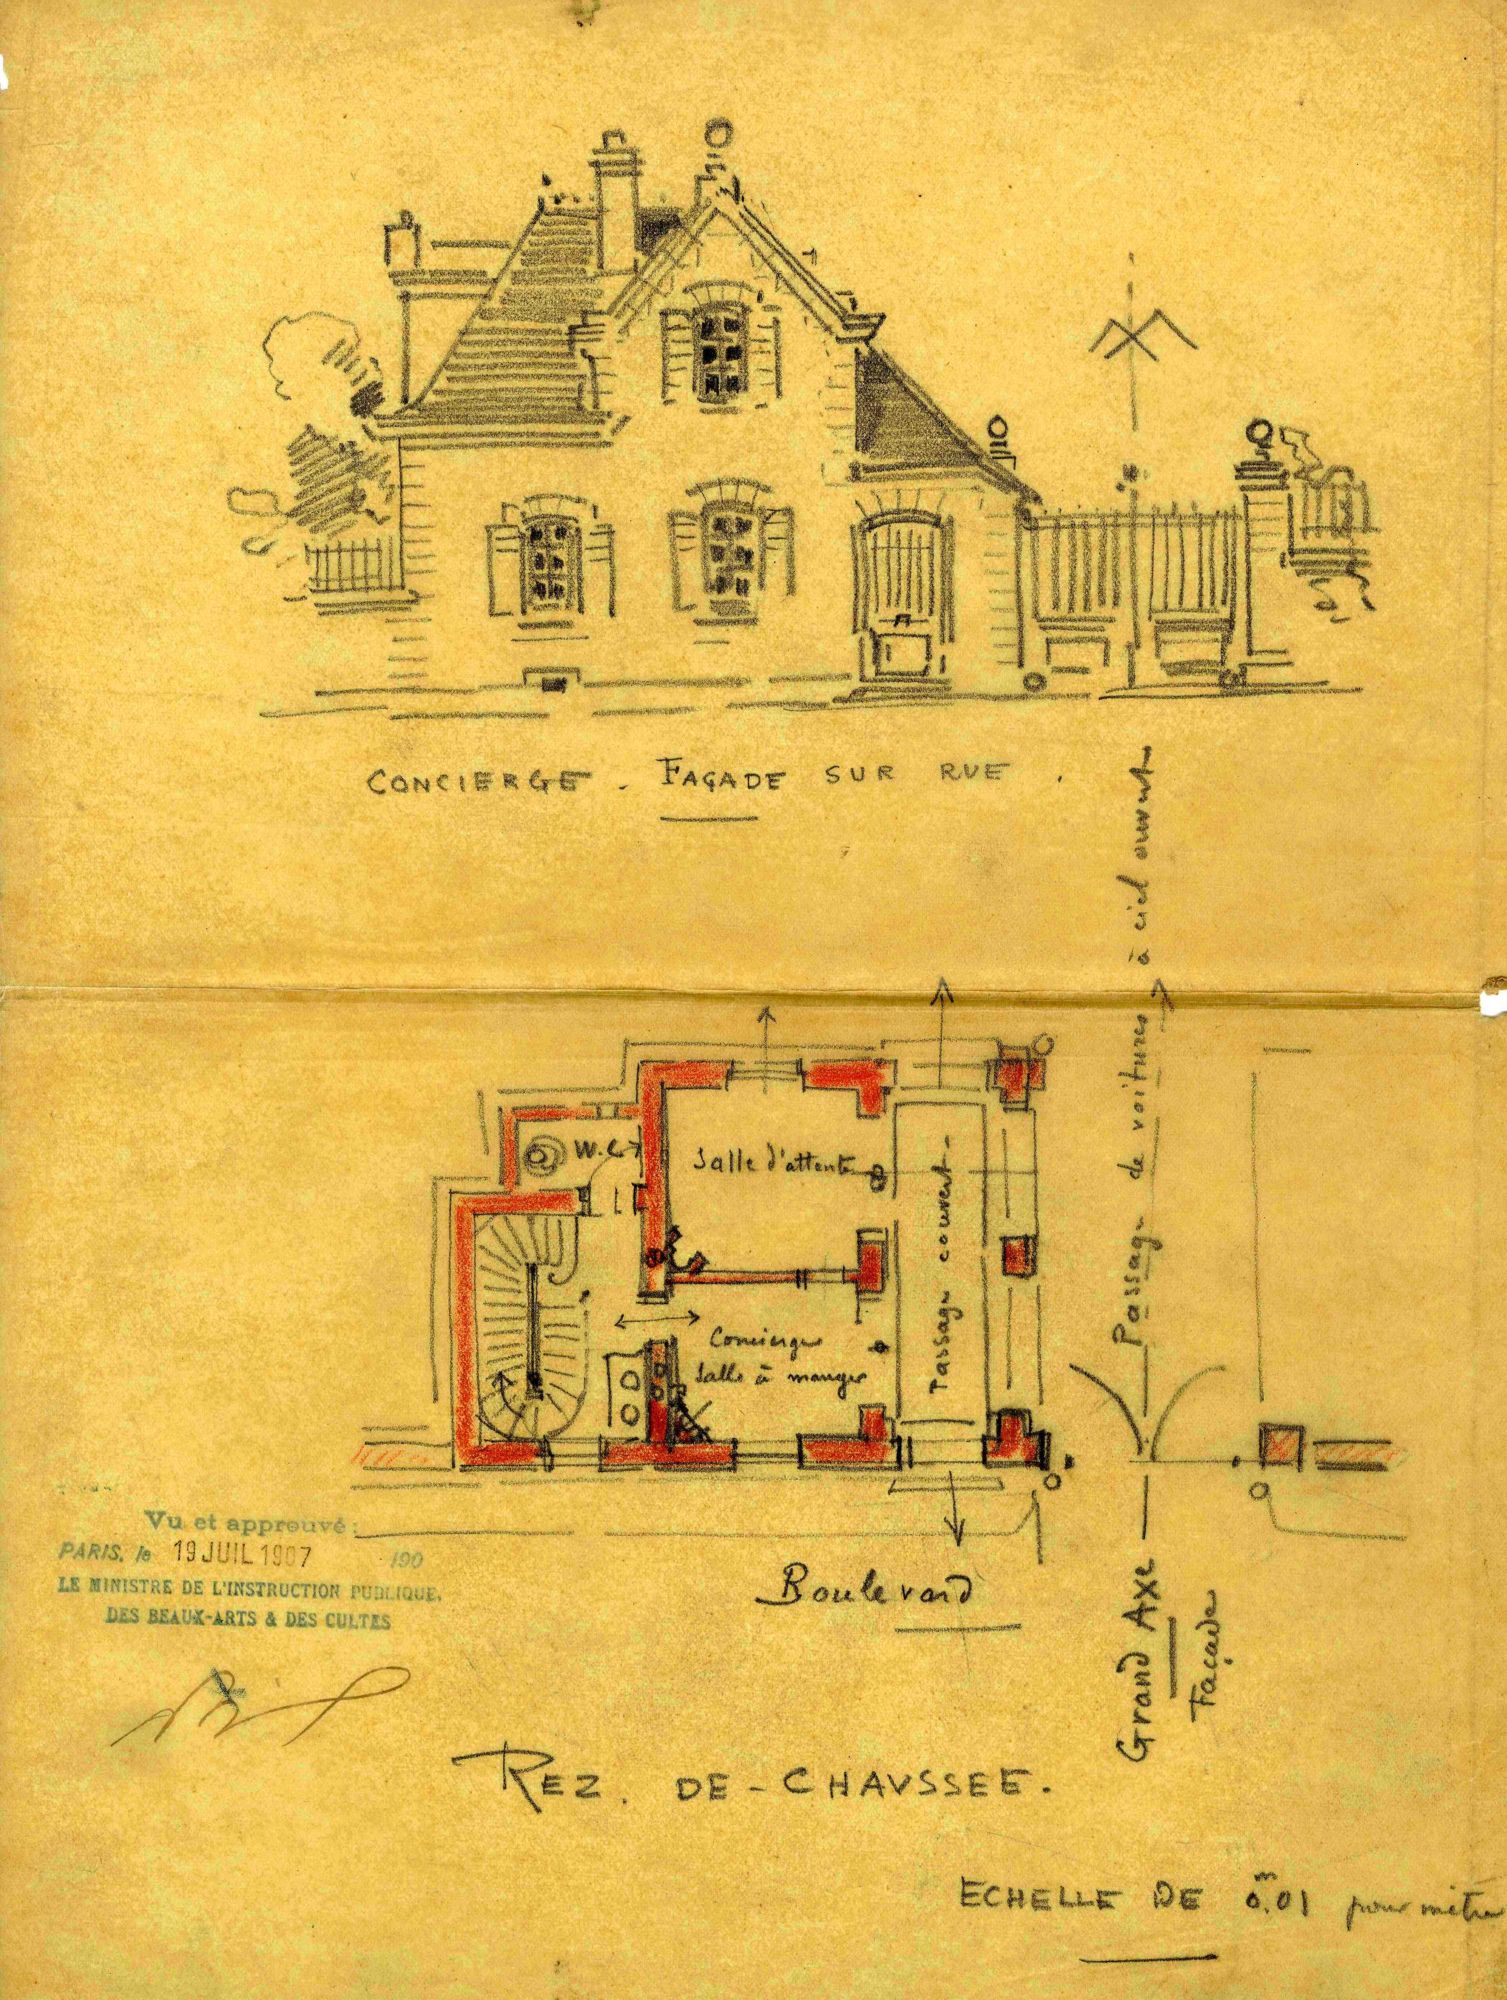 CONCIERGE. FAÇADE SUR RUE.
Passage de voitures à ciel ouvert
W.C.
Salle d'attente
Passage couvert
Concierge
Salle à manger
Boulevard
Grand AXE
Façade
Vu et approuvé:
PARIS, le 19 JUIL 1907 190
LE MINISTRE DE L'INSTRUCTION PUBLIQUE,
DES BEAUX-ARTS & DES CULTES
REZ. DE-CHAVSSEE.
ECHELLE DE 0m.01 pour mètre